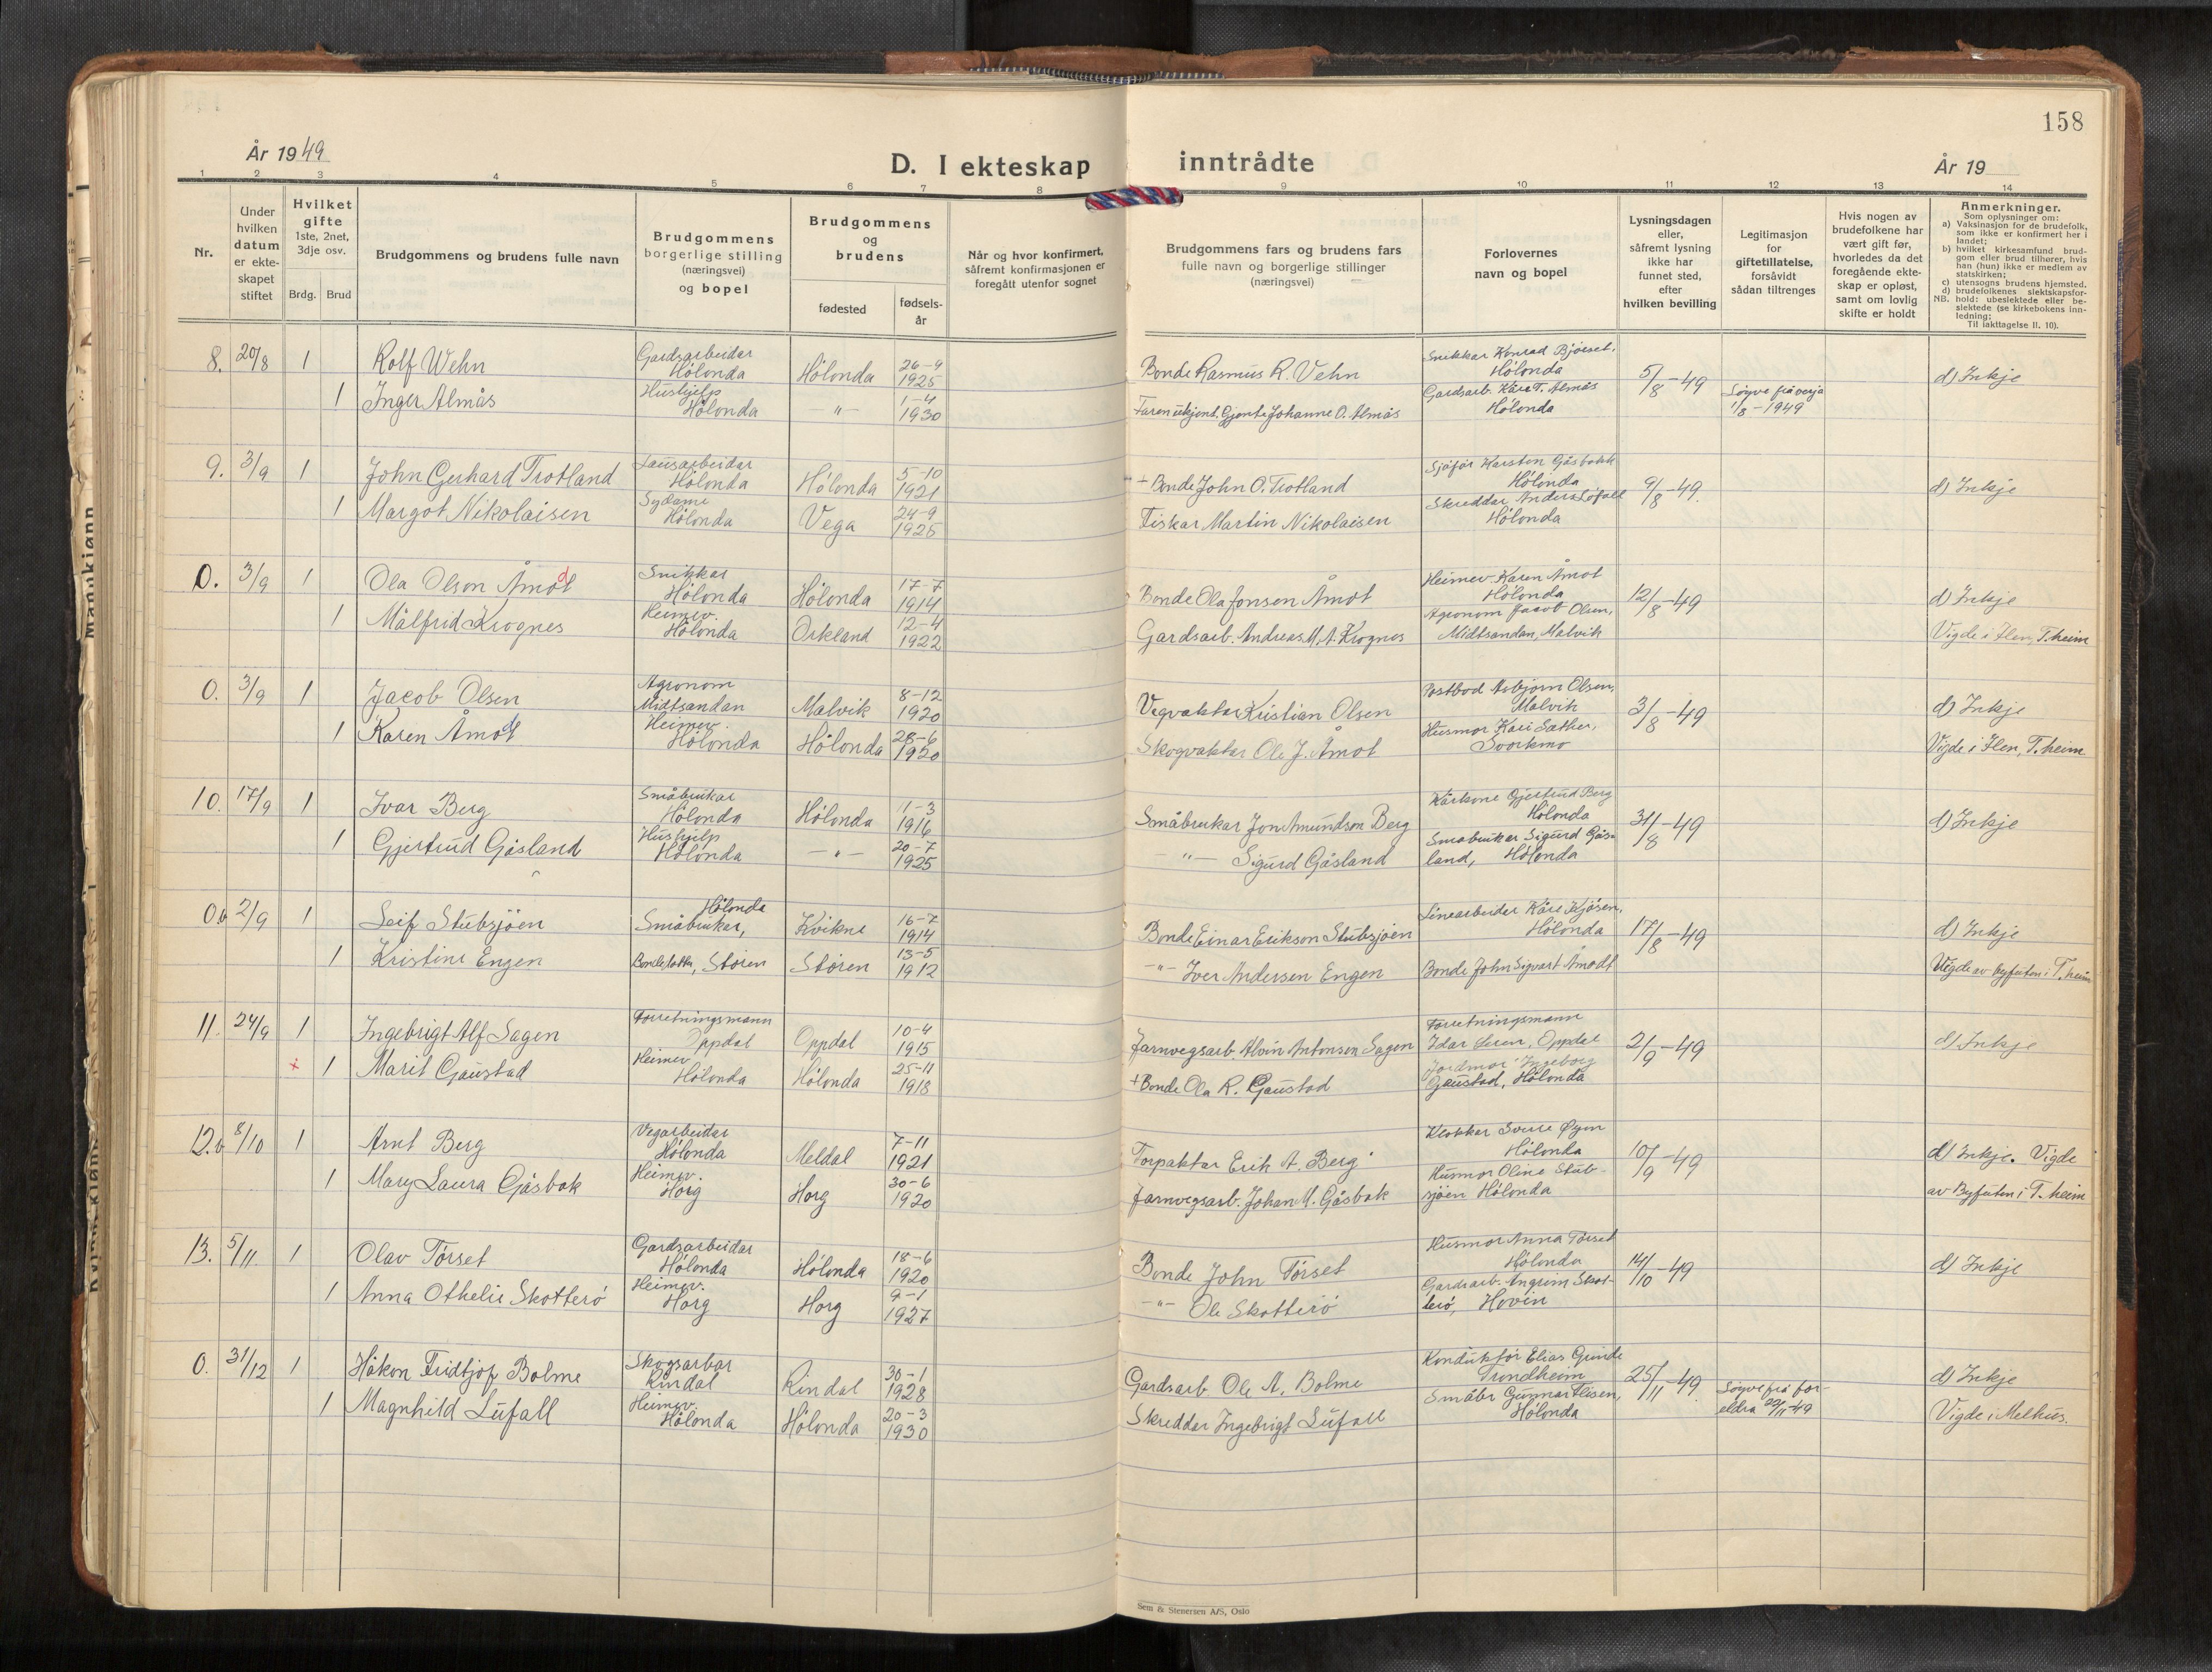 158
År 1949
D. I ekteskap inntrådte
År 19
1 2 3 4 5 6 7 8 9 10 11 12 13 14
Nr.
Under hvilken datum er ekteskapet stiftet
Hvilket gifte
1ste, 2net, 3dje osv.
Brdg. Brud
Brudgommens og brudens fulle navn
Brudgommens borgerlige stilling (næringsvei) og bopel
Brudgommens og brudens
fødested
fødselsår
Når og hvor konfirmert, såfremt konfirmasjonen er foregått utenfor sognet
Brudgommens fars og brudens fars fulle navn og borgerlige stillinger (næringsvei)
Forlovernes navn og bopel
Lysningsdagen eller, såfremt lysning ikke har funnet sted, efter hvilken bevilling
Legitimasjon for giftetillatelse, forsåvidt sådan tiltrenges
Hvis nogen av brudefolkene har vært gift før, hvorledes da det foregående ekteskap er opløst, samt om lovlig skifte er holdt
Anmerkninger.
Som oplysninger om:
a) Vaksinasjon for de brudefolk, som ikke er konfirmert her i landet;
b) hvilket kirkesamfund brudgom eller brud tilhører, hvis han (hun) ikke er medlem av statskirken;
c) utensogns brudens hjemsted.
d) brudefolkenes slektskapsforhold: ubeslektede eller beslektede (se kirkebokens innledning;
NB.
Til iakttagelse II. 10).
8. 20/8 1 Rolf Wehn Gardsarbeidar Hølonda Hølonda 26-9 1925 Bonde Rasmus R. Vehn Snikkar Konrad Bjørset, Hølonda 5/8-49 d) Inkje
1 Inger Almås Hushjelp Hølonda -"- 1-4 1930 Faren ukjent, Gjente Johanne O. Almås Gardsarb. Kåre T. Almås Hølonda Løyve frå verja 1/8-1949
9. 3/9 1 John Gerhard Trotland Lausarbeidar Hølonda Hølonda 5-10 1921 + Bonde John O. Trotland Sjåfør Karsten Gåsbakk Hølonda 9/8-49. d) Inkje
1 Margot Nikolaisen Sydame Hølonda Vega 24-9 1925 Fiskar Martin Nikolaisen Skreddar Anders Løfall Hølonda
0. 3/9 1 Ola Olson Åmot d Snikkar Hølonda Hølonda 17-7 1914 Bonde Ola Jonsen Åmot Heimev. Karen Åmot Hølonda 12/8-49 d) Inkje
1 Målfrid Krognes Heimev. Hølonda Orkland 12-4 1922 Gardsarb. Andreas M. A. Krognes Agronom Jacob Olsen, Midtsandan, Malvik Vigde i Ilen, T.heim
0. 3/9 1 Jacob Olsen Agronom Midtsandan Malvik 8-12 1920 Vegvaktar Kristian Olsen Postbod Asbjørn Olsen, Malvik 3/8-49 d) Inkje
1 Karen Åmot Heimev. Hølonda Hølonda 28-6 1920 Skogvaktar Ole J. Åmot Husmor Kari Sæther, Svorkmo Vigde i Ilen, T.heim
10. 17/9 1 Ivar Berg Småbrukar Hølonda Hølonda 11-3 1916 Småbrukar Jon Amundson Berg Kårkone Gjertrud Berg Hølonda 31/8-49 d) Inkje
1 Gjertrud Gåsland Hushjelp Hølonda -"- 20-7 1925 -"- Sigurd Gåsland Småbrukar Sigurd Gåsland, Hølonda
0b 2/9 1 Leif Stubsjøen Småbrukar, Hølonda Kvikne 16-7 1914 Bonde Einar Erikson Stubsjøen Linearbeider Kåre Kjøsen, Hølonda 17/8-49 d) Inkje
1 Kristine Engen Bondedatter, Støren Støren 13-5 1912 -"- Iver Andersen Engen Bonde John Sigvart Åmodt Vigde av byfuten i T.heim
11. 24/9 1 Ingebrigt Alf Sagen Forretningsmann Oppdal Oppdal 10-4 1915 Jarnvegsarb. Alvin Antonsen Sagen Forretningsmann Idar Loren, Oppdal 2/9-49 d) Inkje
x 1 Marit Gaustad Heimev Hølonda Hølonda 25-11 1918 + Bonde Ola R. Gaustad Jordmor Ingeborg Gaustad, Hølonda
12.b 8/10 1 Arnt Berg Vegarbeidar Hølonda Meldal 7-11 1921 Forpaktar Erik A. Berg Klokkar Sverre Øyen Hølonda 10/9-49 d) Inkje. Vigde
1 Mary Laura Gåsbak Heimev. Horg Horg 30-6 1920 Jarnvegsarb. Johan M. Gåsbak Husmor Oline Stubsjøen Hølonda av Byfuten i T.heim
13. 5/11 1 Olav Tørset Gardsarbeidar Hølonda Hølonda 18-6 1920 Bonde John Tørset Husmor Anna Tørset Hølonda 14/10-49 d) Inkje
1 Anna Othelie Skotterø Heimev. Horg Horg 9-1 1927 -"- Ole Skotterø Gardsarb. Angrim Skotterø, Hovin
0. 31/12 1 Håkon Fridtjof Bolme Skogsarbar Rindal Rindal 30-1 1928 Gardsarb. Ole A. Bolme Konduktør Elias Grinde Trondheim 25/11-49 d) Inkje
1 Magnhild Lufall Heimev. Hølonda Hølonda 20-3 1930 Skreddar Ingebrigt Lufall Småbr Gunnar Flisen, Hølonda Løyve frå foreldra 22/11-49 Vigde i Melhus.
Sem & Stenersen A/S, Oslo